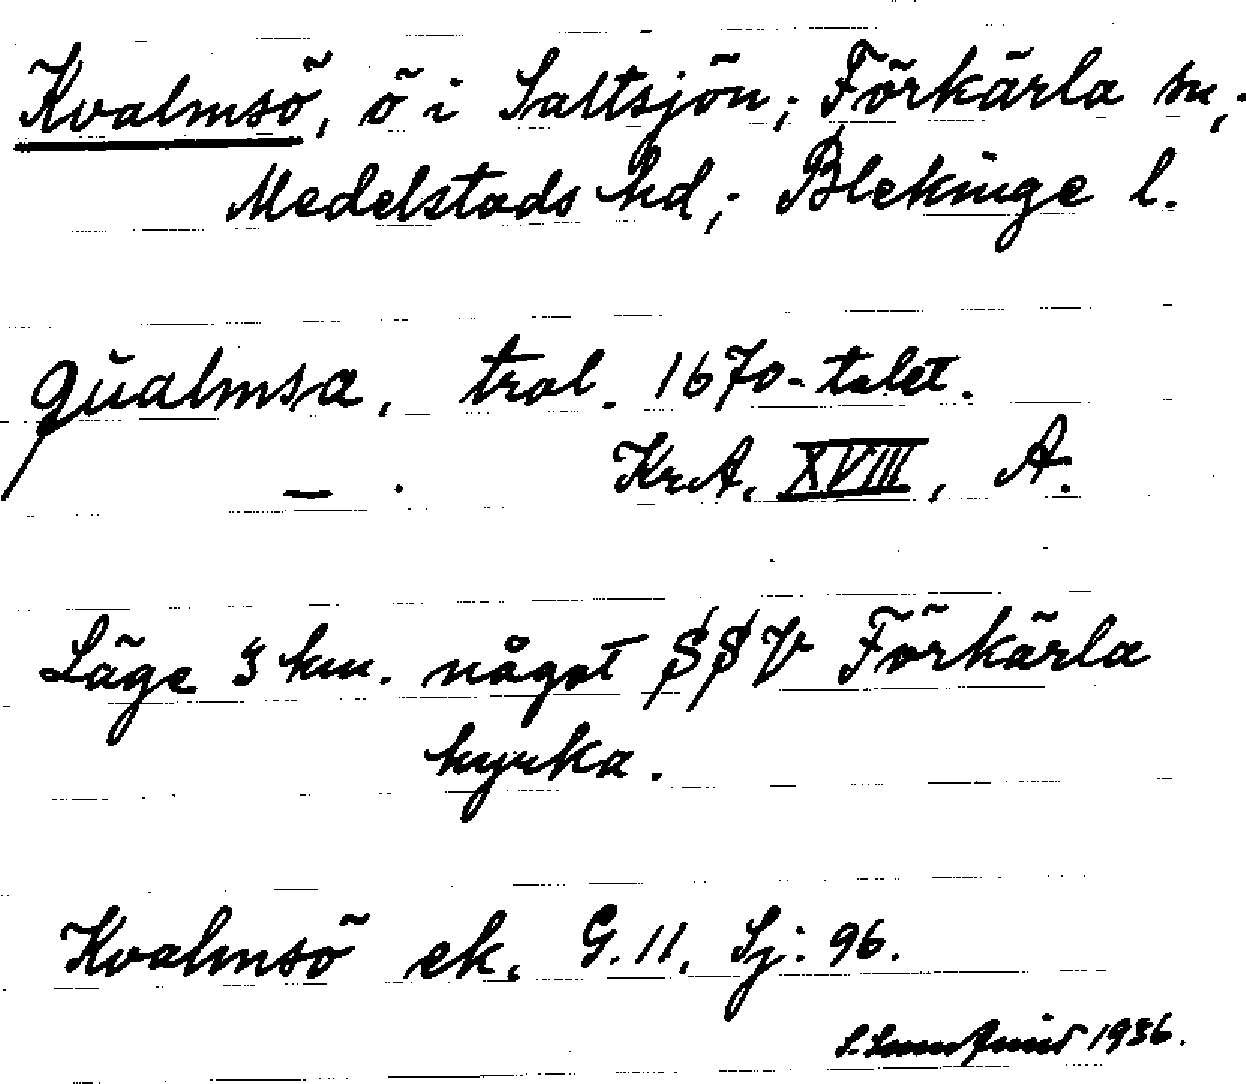 Kvalmsö, ö i Saltsjön; Förkärla sn;
Medelstads hd; Blekinge l.
Qŭalmsa, trol. 1670-talet.
— . KrA, XVIII, A.
Läge 3 km. något SSV Förkärla
kyrka.
Kvalmsö ek. G.11. Sj: 96.
1936.